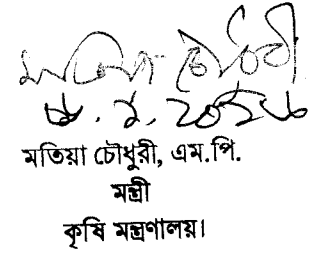 মতিয়া চৌধুরী
মতিয়া চৌধুরী, এম.পি.
মন্ত্রী
কৃষি মন্ত্রণালয়।